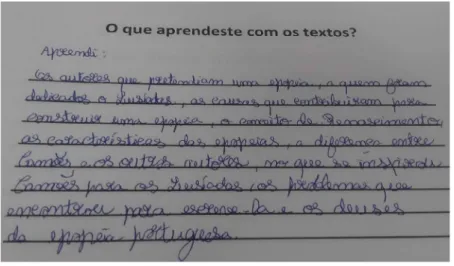 O que aprendeste com os textos?
Aprendi:
Os autores que pretendiam uma epopeia, a quem foram
dedicados o Lusíadas, as causas que contribuiram para
construir uma epopeia, o conceito de Renascimento,
as características das epopeias, a diferença entre
Camões e os outros autores, no que se inspirou
Camões para os Lusíadas, os problemas que
encontrou para escreve-la e os deuses
da epopeia portuguesa.